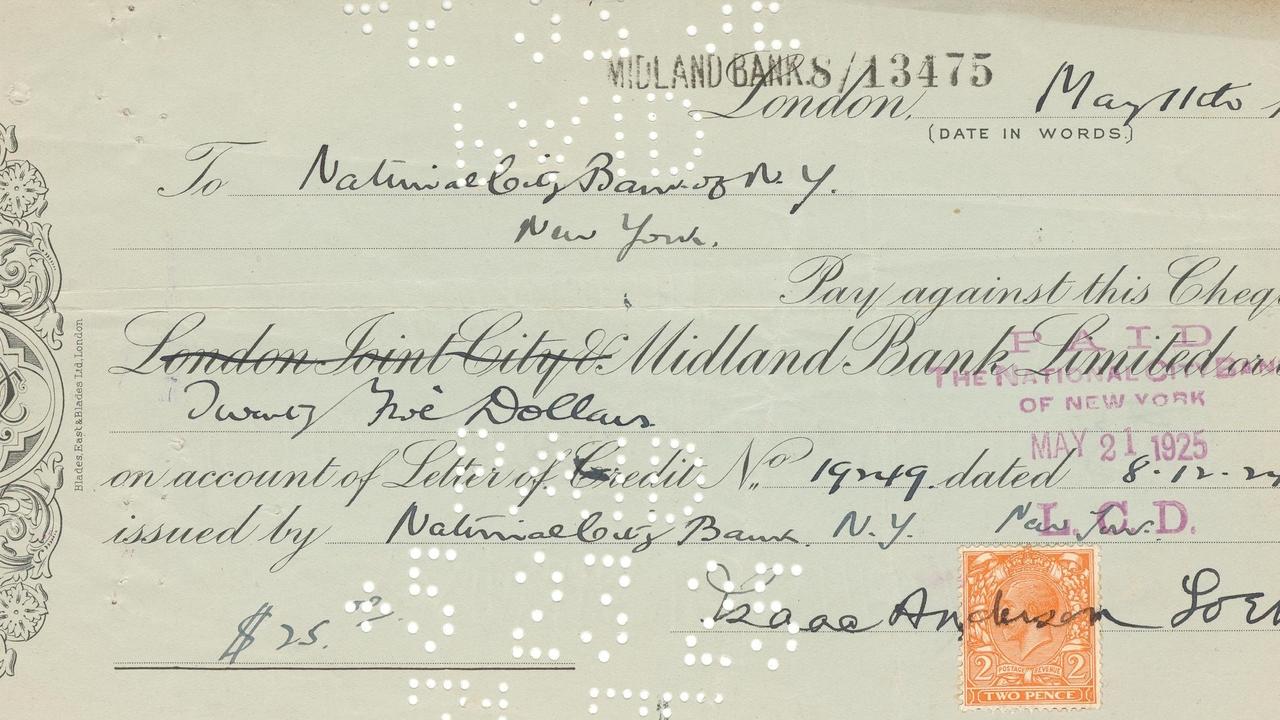 MIDLAND BANK.S/13475
London, May 11th
(DATE IN WORDS.)
To National City Bank of N.Y.
New York.
Pay against this Cheq
London Joint City & Midland Bank Limited or
PAID
THE NATIONAL CITY BANK
OF NEW YORK
Twenty Five Dollars
MAY 21 1925
on account of Letter of Credit No. 19249. dated 8-12-24
issued by National City Bank. N.Y. New York.
L.C.D.
$25.
Isaac Anderson
2 POSTAGE REVENUE 2
TWO PENCE
Blades, East & Blades Ltd. London
PAID
5 21 25